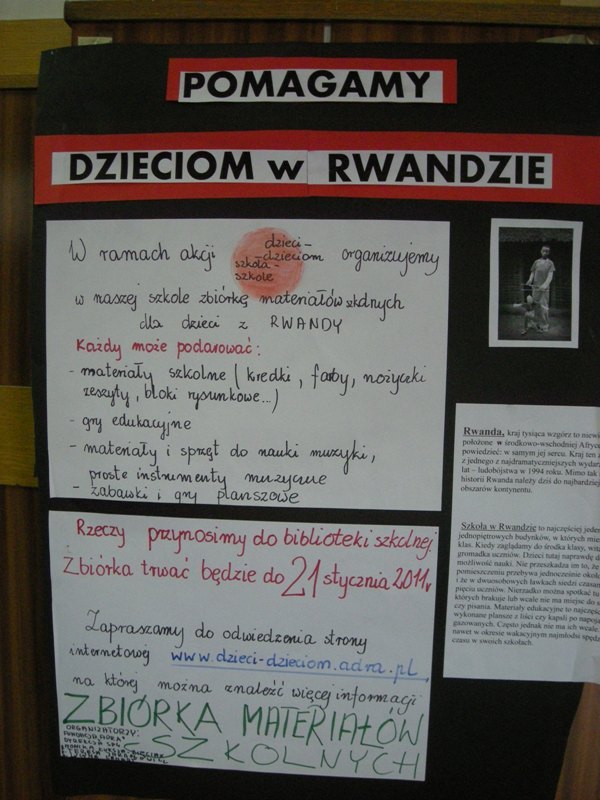 POMAGAMY
DZIECIOM w RWANDZIE
W ramach akcji dzieci-dzieciom szkoła-szkole organizujemy
w naszej szkole zbiórkę materiałów szkolnych
dla dzieci z RWANDY
Każdy może podarować:
- materiały szkolne ( kredki, farby, nożyczki
zeszyty, bloki rysunkowe...)
- gry edukacyjne
- materiały i sprzęt do nauki muzyki,
proste instrumenty muzyczne
- zabawki i gry planszowe
Rzeczy przynosimy do biblioteki szkolnej.
Zbiórka trwać będzie do 21 stycznia 2011r
Zapraszamy do odwiedzenia strony
internetowej www.dzieci-dzieciom.adra.pl,
na której można znaleźć więcej informacji
ZBIÓRKA MATERIAŁÓW
SZKOLNYCH
ORGANIZATORZY:
FUNDACJA "ADRA"
DYREKCJA
Rwanda, kraj tysiąca wzgórz to niewi
położone w środkowo-wschodniej Afryce
powiedzieć: w samym jej sercu. Kraj ten
z jednego z najdramatyczniejszych wydarz
lat – ludobójstwa w 1994 roku. Mimo tak
historii Rwanda należy dziś do najbardziej
obszarów kontynentu.
Szkoła w Rwandzie to najczęściej jeden
jednopiętrowych budynków, w których mie
klas. Kiedy zaglądamy do środka klasy, wita
gromadka uczniów. Dzieci tutaj naprawdę do
możliwość nauki. Nie przeszkadza im to, że
pomieszczeniu przebywa jednocześnie około
i że w dwuosobowych ławkach siedzi czasam
pięciu uczniów. Nierzadko można spotkać tu
których brakuje lub wcale nie ma miejsc do s
czy pisania. Materiały edukacyjne to najczęśc
wykonane plansze z liści czy kapsli po napoja
gazowanych. Często jednak nie ma ich wcale
nawet w okresie wakacyjnym młodzi spędz
czasu w swoich szkołach.